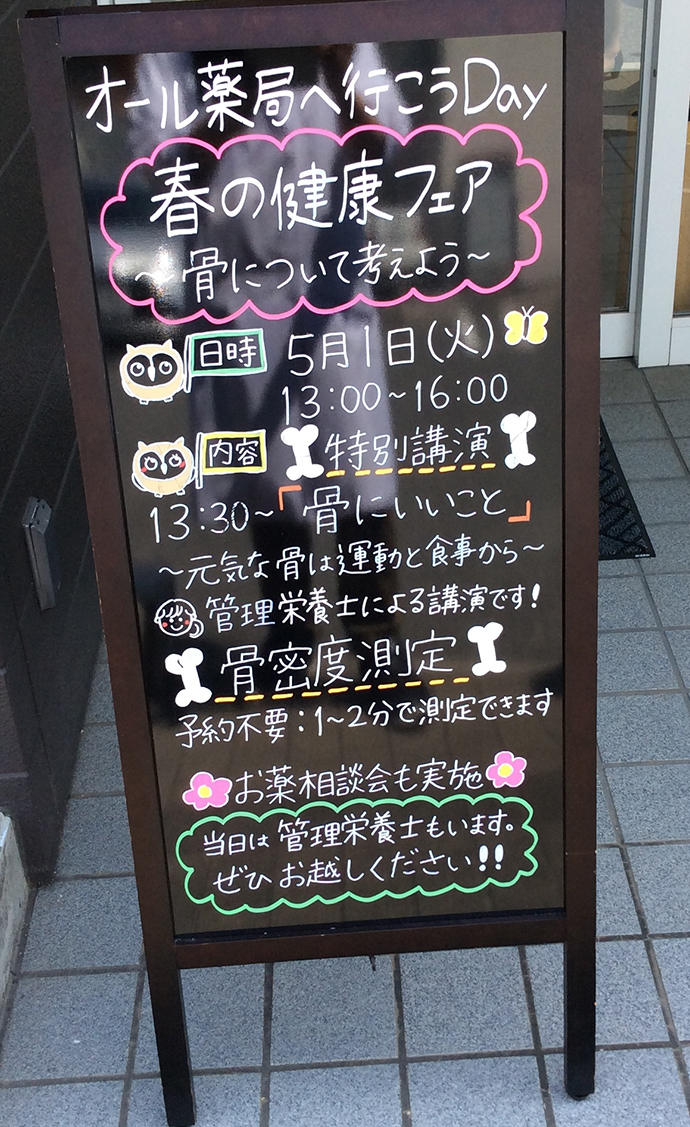 オール薬局へ行こうDay
春の健康フェア
～骨について考えよう～
日時 5月1日(火)
13:00～16:00
内容 特別講演
13:30～「骨にいいこと」
～元気な骨は運動と食事から～
管理栄養士による講演です!
骨密度測定
予約不要:1～2分で測定できます
お薬相談会も実施
当日は管理栄養士もいます。
ぜひお越しください!!